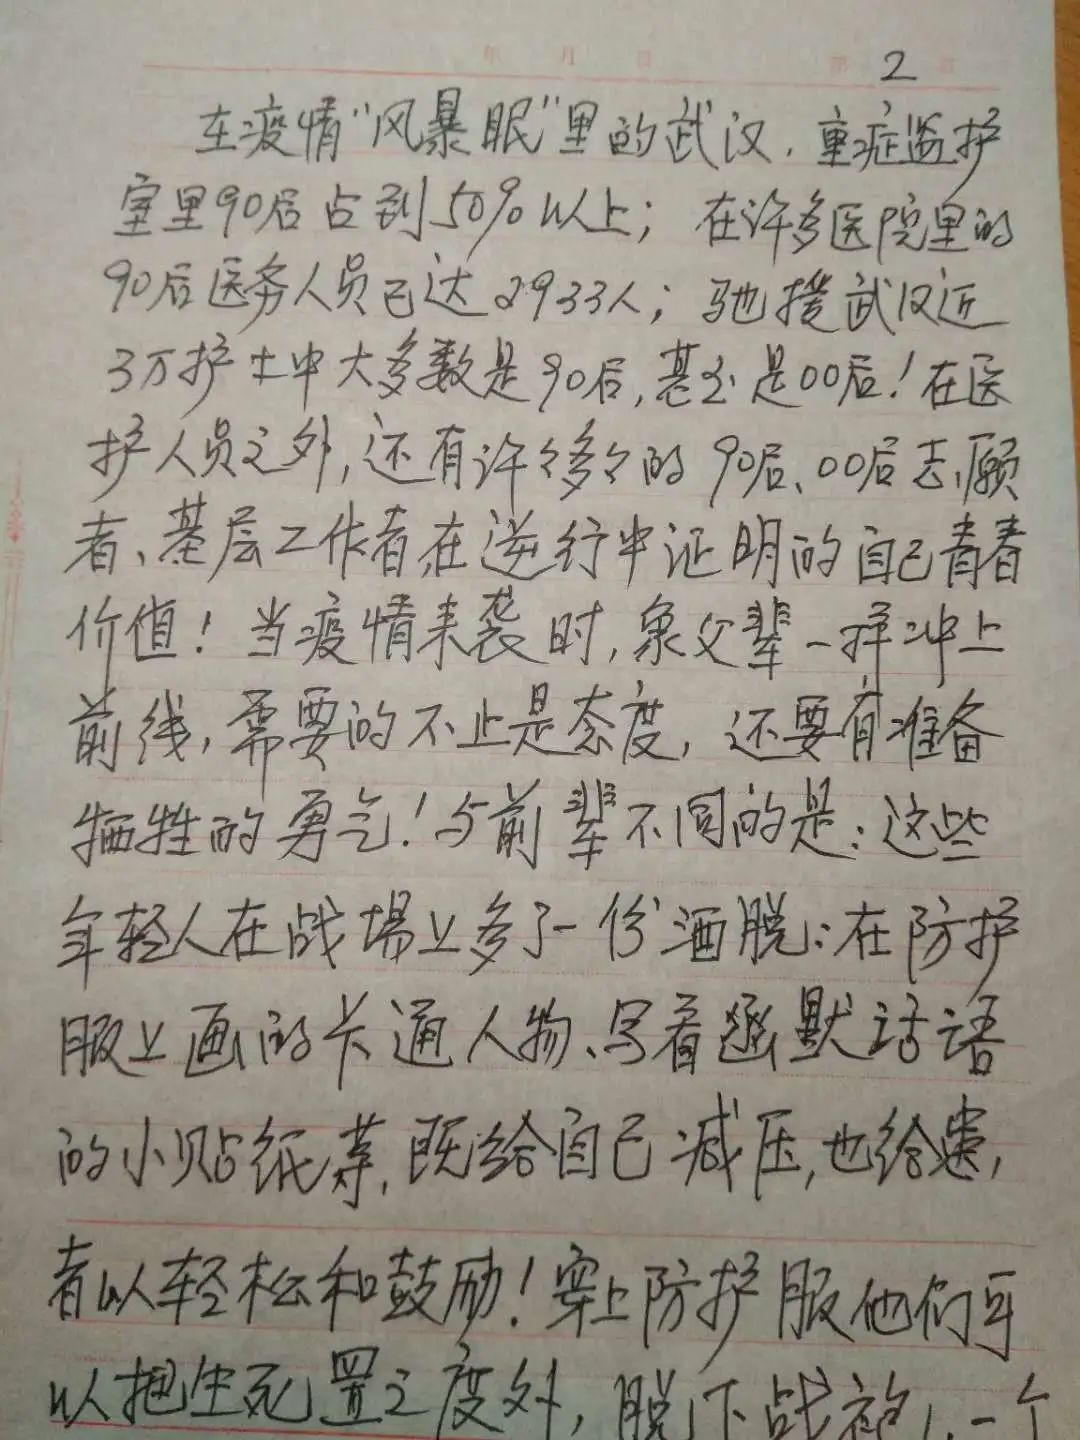 年 月 日 第 2 页
在疫情“风暴眼”里的武汉，重症监护
室里90后占到50%以上；在许多医院里的
90后医务人员已达2933人；驰援武汉近
3万护士中大多数是90后，甚至是00后！在医
护人员之外，还有许许多多的90后、00后志愿
者、基层工作者在逆行中证明的自己青春
价值！当疫情来袭时，象父辈一样冲上
前线，需要的不止是态度，还要有准备
牺牲的勇气！与前辈不同的是：这些
年轻人在战場上多了一份洒脱：在防护
服上画的卡通人物、写着幽默话语
的小贴纸等，既给自己减压，也给患，
者以轻松和鼓励！穿上防护服他们可
以把生死置之度外，脱下战袍，一个